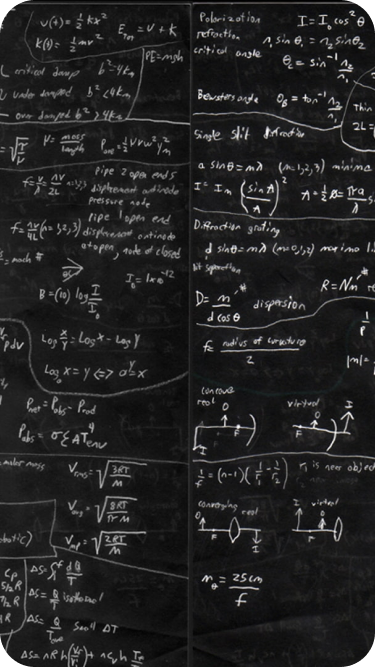 U(t) = ½ kx²
K(t) = ½ mv²
E_m = U + K
PE = mgh
critical damp b² = 4km
under damped b² < 4km
over damped b² > 4km
μ = mass/length
P_ave = ½ μvω²y²m
f = v/λ = nv/2L
pipe 2 open ends
displacement antinode
pressure node
f = nv/4L (n=1,3,5)
pipe 1 open end
displacement antinode
at open, node at closed
I₀ = 1×10⁻¹²
B = (10) log I/I₀
pdV
Log x/y = Log x - Log y
Log_a x = y <=> a^y = x
P_net = P_abs - P_rad
P_abs = σεAT⁴env
molar mass
V_rms = √(3RT/M)
V_avg = √(8RT/πM)
V_mp = √(2RT/M)
ΔS = ∫ dQ/T
ΔS = Q/T isothermal
ΔS = Q/T_ave small ΔT
Polarization I = I₀ cos² θ
refraction n₁ sin θ₁ = n₂ sin θ₂
critical angle θc = sin⁻¹ n₂/n₁
Brewsters angle θB = tan⁻¹ n₂/n₁
Thin
2L =
Single slit diffraction
a sin θ = mλ (m=1,2,3) minima
I = Im (sin A / A)²
Diffraction grating
d sin θ = mλ (m=0,1,2) maxima
slit separation
D = m/(d cos θ) dispersion
R = Nm
f = radius of curvature / 2
|m| =
concave
real
virtual
1/f = (n-1)(1/r₁ - 1/r₂) r₁ is near object
converging real
virtual
m_θ = 25cm/f